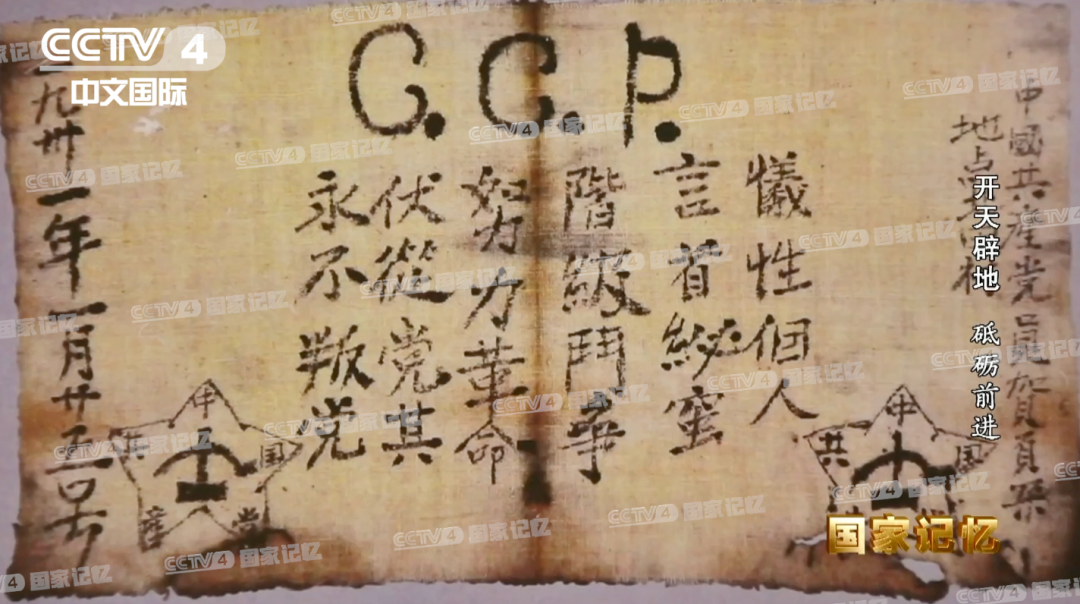 CCTV 4
中文国际
C.C.P.
中國共產党員
地点
犧性個人
言首秘蜜
階級鬥爭
努力革命
伏從党其
永不叛党
九卅一年一月廿五号
中国共產党
中国共
开天辟地 砥砺前进
国家记忆
CCTV4 国家记忆